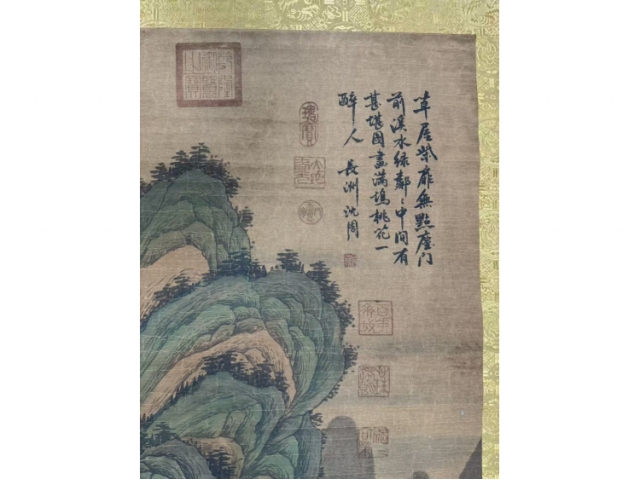 草屋柴扉無點塵门
前溪水緑鄰〻中間有
甚堪圖畫滿塢桃花一
醉人 長洲沈周